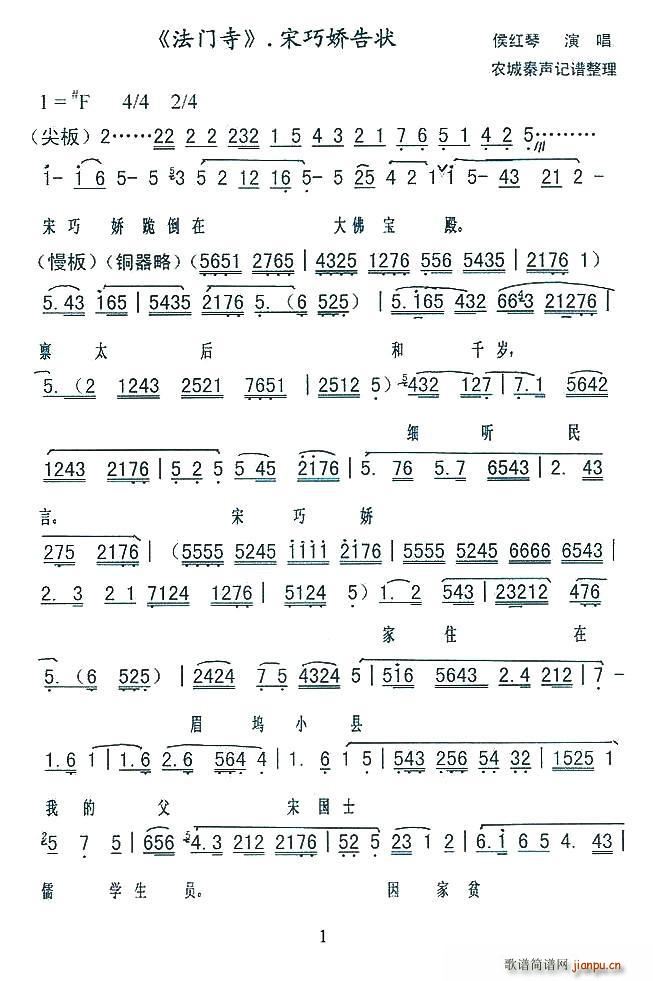 《法门寺》.宋巧娇告状
侯红琴 演 唱
农城秦声记谱整理
1=#F 4/4 2/4
(尖板) 2……22 2 2 232 1 5 4 3 2 1 7 6 5 1 4 2 5………
1- 1 6 5- 5- 5 3 5 2 12 16 5- 5- 25 4 2 1 1 5- 43 21 2 -
宋 巧 娇 跪 倒 在 大 佛 宝 殿。
(慢板) (铜器略) (5651 2765 | 4325 1276 556 5435 | 2176 1)
5.43 165 | 5435 2176 5.(6 525) | 5.165 432 6643 21276 |
禀 太 后 和 千 岁,
5.(2 1243 2521 7651 | 2512 5) 5432 127 | 7.1 5642
细 听 民
1243 2176 | 5 2 5 5 45 2176 | 5. 76 5.7 6543 | 2. 43
言。 宋 巧 娇
275 2176 | (5555 5245 1111 2176 | 5555 5245 6666 6543 |
2. 3 2 1 7124 1276 | 5124 5) 1. 2 543 | 23212 476
家 住 在
5.(6 525) | 2424 7 5 4324 5 | 516 5643 2.4 212 | 7 -
眉 坞 小 县
1.6 1 | 1.6 2.6 564 4 | 1.6 1 5 | 543 256 54 32 | 1525 1
我 的 父 宋 国 士
2 5 7 5 | 656 5 4.3 212 2176 | 52 5 23 1 2 | 6.1 6 5 4. 43 |
儒 学 生 员。 因 家 贫
1
歌谱简谱网
jianpu.cn